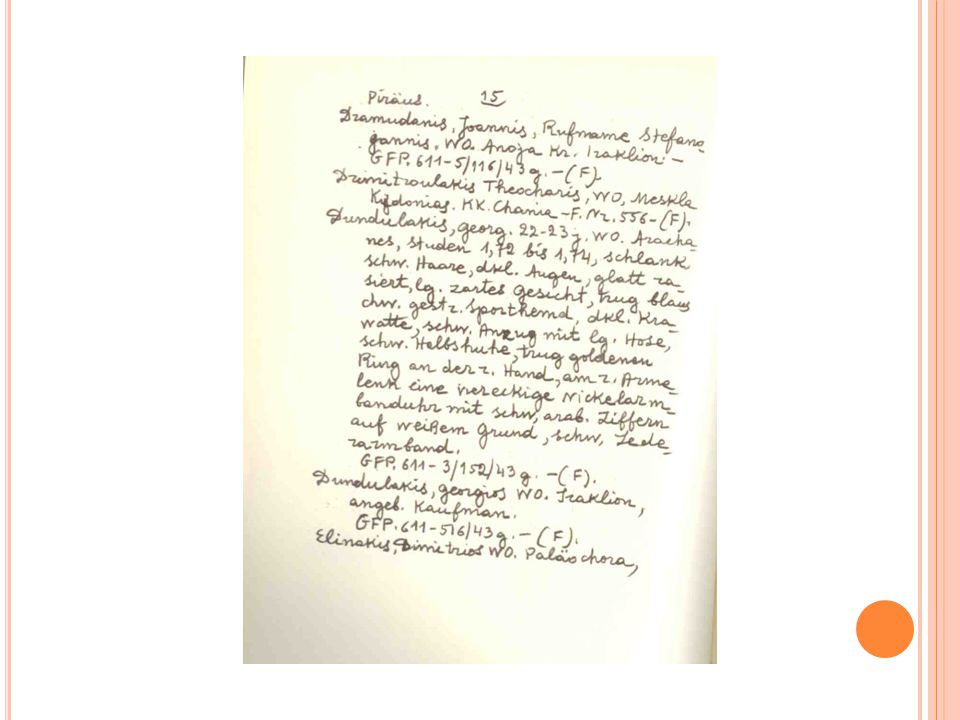 Piräus. 15
Dramudanis, Joannis, Rufname Stefano
jannis. WO. Anoja Kr. Iraklion -
GFP. 611-5/116/43 g. -(F).
Drimitroulakis Theocharis, WO, Meskla
Kydonias. KK. Chania -F. Nr. 556-(F).
Dundulakis, georg. 22-23 j. WO. Aracha-
nes, studen 1,72 bis 1,74, schlank
schw. Haare, dkl. Augen, glatt ra-
siert, lg. zartes gesicht, trug blau
chw. gestr. Sporthemd, dkl. Kra-
watte, schw. Anzug mit lg. Hose,
schw. Halbshuhe, trug goldenen
Ring an der r. Hand, am r. Arme-
lenk eine viereckige Nickelarm-
banduhr mit schw, arab. Ziffern
auf weißem grund, schw. Lede-
rarmband.
GFP. 611-3/152/43 g. -(F).
Dundulakis, georgios WO. Iraklion,
angeb. Kaufman.
GFP. 611-516/43 g. -(F).
Elinakis, Dimitrios WO. Paläochora,